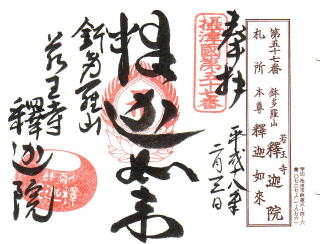 第五十七番
札所 本尊 鉢多羅山 若王寺
釋迦如來 釋迦院
奉拝
平成十八年
二月三日
摂津國第五十七番
釋迦如来
鉢多羅山
若王寺
釋迦院